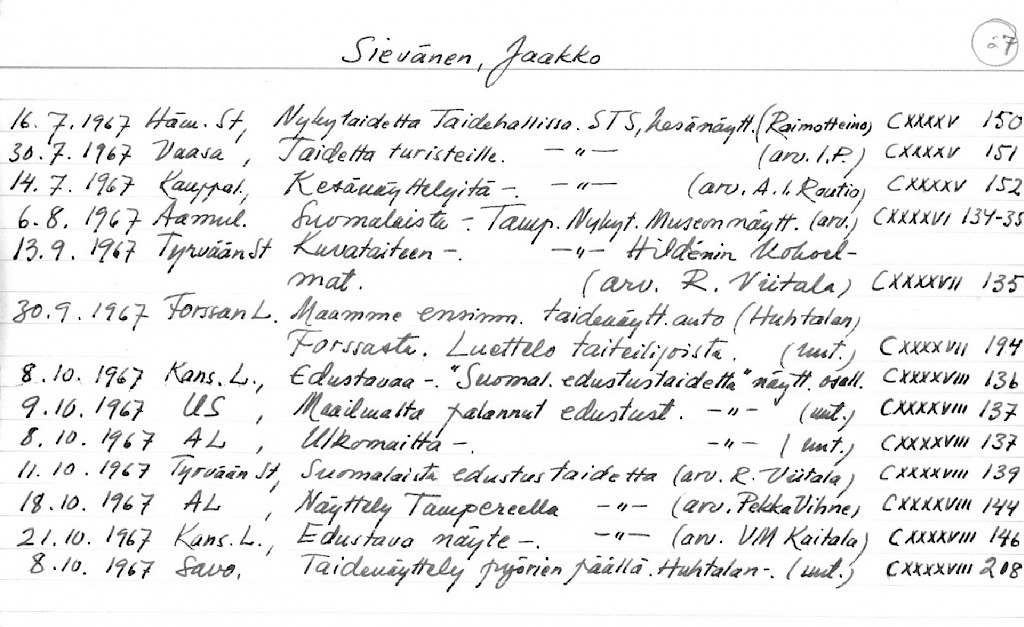 27
Sievänen, Jaakko
16.7.1967 Häm. St, Nykytaidetta Taidehallissa. STS, kesänäytt. (Raimo Heino) CXXXXV 150
30.7.1967 Vaasa, Taidetta turisteille. —"— (arv. I.P.) CXXXXV 151
14.7.1967 Kauppal., Kesänäyttelyitä -. —"— (arv. A.I. Routio) CXXXXV 152
6.8.1967 Aamul. Suomalaista -. Tamp. Nykyt. Museon näytt. (arv.) CXXXXVI 134-35
13.9.1967 Tyrvään St Kuvataiteen -. —"— Hildénin kokoel-
mat. (arv. R. Viitala) CXXXXVII 135
30.9.1967 Forssan L. Maamme ensimm. taidenäytt.auto (Huhtalan)
Forssasta. Luettelo taiteilijoista. (uut.) CXXXXVII 194
8.10.1967 Kans. L., Edustavaa -. "Suomal. edustustaidetta" näytt. osall. CXXXXVIII 136
9.10.1967 US, Maailmalta palannut edustust. —"— (uut.) CXXXXVIII 137
8.10.1967 AL, Ulkomailta -. —"— (uut.) CXXXXVIII 137
11.10.1967 Tyrvään St, Suomalaista edustustaidetta (arv. R. Viitala) CXXXXVIII 139
18.10.1967 AL, Näyttely Tampereella —"— (arv. Pekka Vihne) CXXXXVIII 144
21.10.1967 Kans. L., Edustava näyte -. —"— (arv. VM Kaitala) CXXXXVIII 146
8.10.1967 Savo. Taidenäyttely pyörien päällä. Huhtalan -. (uut.) CXXXXVIII 208